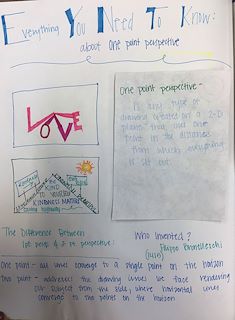 Everything You Need To Know:
about one point perspective
One point perspective -
is any type of
drawing created on a 2-D
plane that has one
point in the distance
from which everything
is set out.
LOVE
BE KIND
TO YOURSELF
KINDNESS MATTERS
The Difference Between
1pt pers. & 2 pt perspective:
Who invented?
Filippo Brunelleschi
(1415)
One point - all lines converge to a single point on the horizon
two point - addresses the drawing issues we face rendering
our subject from the side, where horizontal lines
converge to two points on the horizon